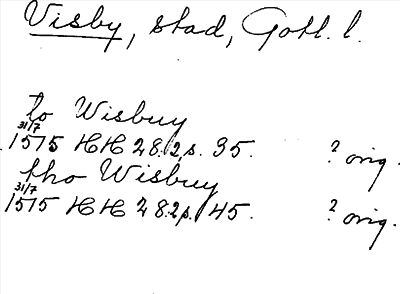 Visby, stad, Gotl. l.
to Wisbuy
31/7
1515 HH 28:2, s. 35. ? orig.
tho Wisbuy
31/7
1515 HH 28:2 s. 45. ? orig.